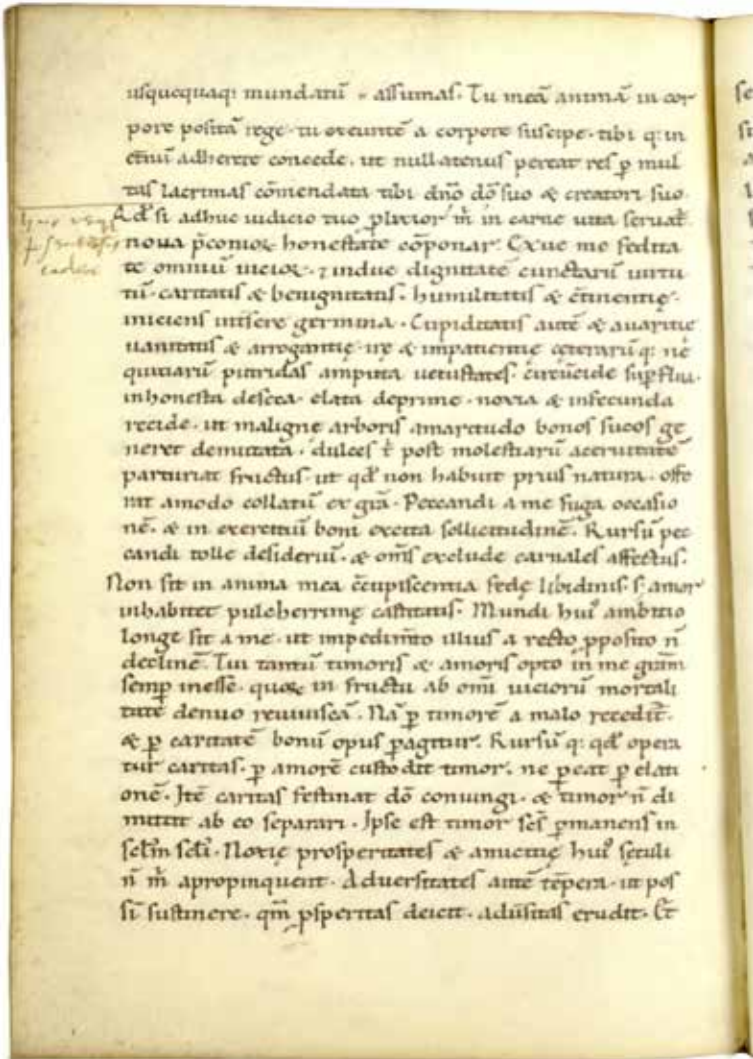 usquequaq; mundatū assumas. Tu meā animā in cor
pore positā rege. tu exeuntē a corpore suscipe. tibi q; in
et̄nū adherere concede. ut nullatenus pereat res p̄ mul
tas lacrimas cōmendata tibi dn̄o dō suo & creatori suo.
Qd̄ si adhuc iudicio tuo plixior m̄ in carne uita seruat̄
noua honestate cōponar. Exue me fedita
te omniū uicioꝝ. ⁊ indue dignitatē cunctarū uirtu
tū. caritatis & benignitatis. humilitatis & c̄tinentię.
iniciens insere germina. Cupiditatis autē & auaritię
uanitatis & arrogantię. irę & impatientię cęterarū q; ne
quitiarū putridas amputa uetustates. circūcide sup̄flua.
inhonesta deseca. elata deprime. noxia & infecunda
recide. ut maligne arboris amaritudo bonos sucos ge
neret demutata. dulces t̄ post molestiarū acerbitatē
parturiat fructus. ut qd̄ non habuit prius natura. offe
rat amodo collatū ex gr̄a. Peccandi a me fuga occasio
nē. & in exercitiū boni excita sollicitudinē. Rursū pec
candi tolle desideriū. & om̄s exclude carnales affectus.
Non sit in anima mea c̄cupiscentia fedę libidinis. s; amor
inhabitet pulcherrimę castitatis. Mundi hui᷒ ambitio
longe sit a me. ut impedim̄to illius a recto p̄posito n̄
declinē. Tui tantū timoris & amoris opto in me gr̄am
semp̄ inesse. quoꝝ in fructu ab om̄i uiciorū mortali
tate denuo reuiuiscā. Nā p̄ timorē a malo recedit̄.
& p̄ caritatē bonū opus p̄agitur. Rursū q; qd̄ opera
tur caritas. p̄ amorē custodit timor. ne p̄eat p̄ elati
onē. Itē caritas festinat dō coniungi. & timor n̄ di
mittit ab eo separari. Ipse est timor sc̄s p̄manens in
sc̄lm sc̄li. Noxię prosperitates & amicitię hui᷒ sęculi
n̄ m̄ apropinquent. Aduersitates autē tēpera. ut pos
sī sustinere. qm̄ p̄speritas deicit. adūsitas erudit. Et